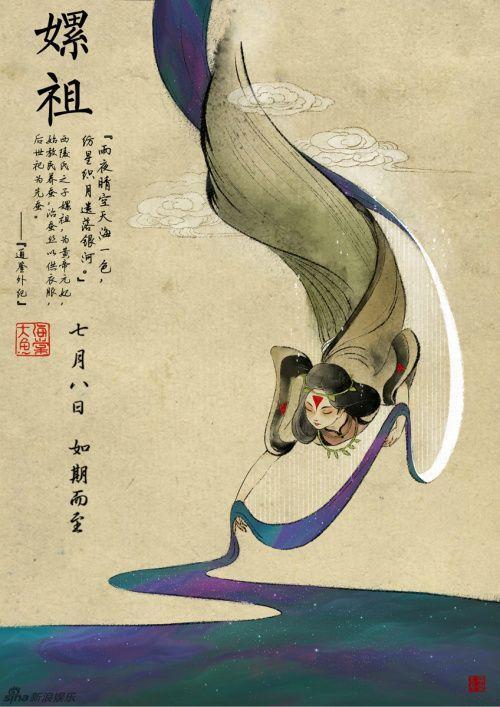 嫘祖
『雨夜晴空天海一色，
纺星织月遗落银河。』
西陵氏之子嫘祖，为黄帝元妃，
始教民养蚕，治蚕丝以供衣服，
后世祀为先蚕。
——『通鉴外纪』
大鱼
海棠
七月八日 如期而至
sina新浪娱乐